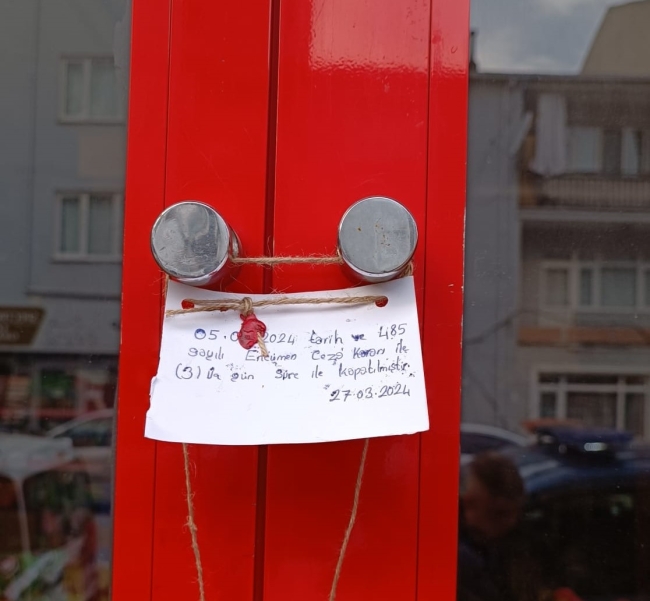 05.0 2024 tarih ve 485
sayılı Encümen Ceza Kararı ile
(3) üç gün süre ile kapatılmıştır.
27.03.2024